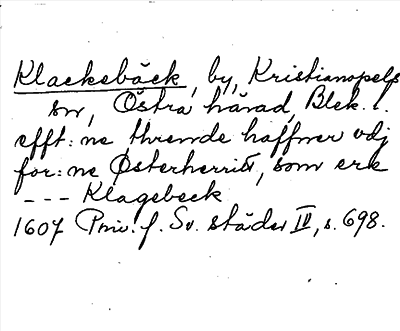 Klackebäck, by, Kristianopels
sn, Östra härad, Blek. l.
efft: ne thrende haffner vdj
for: ne Østerherrit, som erk
--- Klagebeck
1607 Priv. f. Sv. städer IV, s. 698.